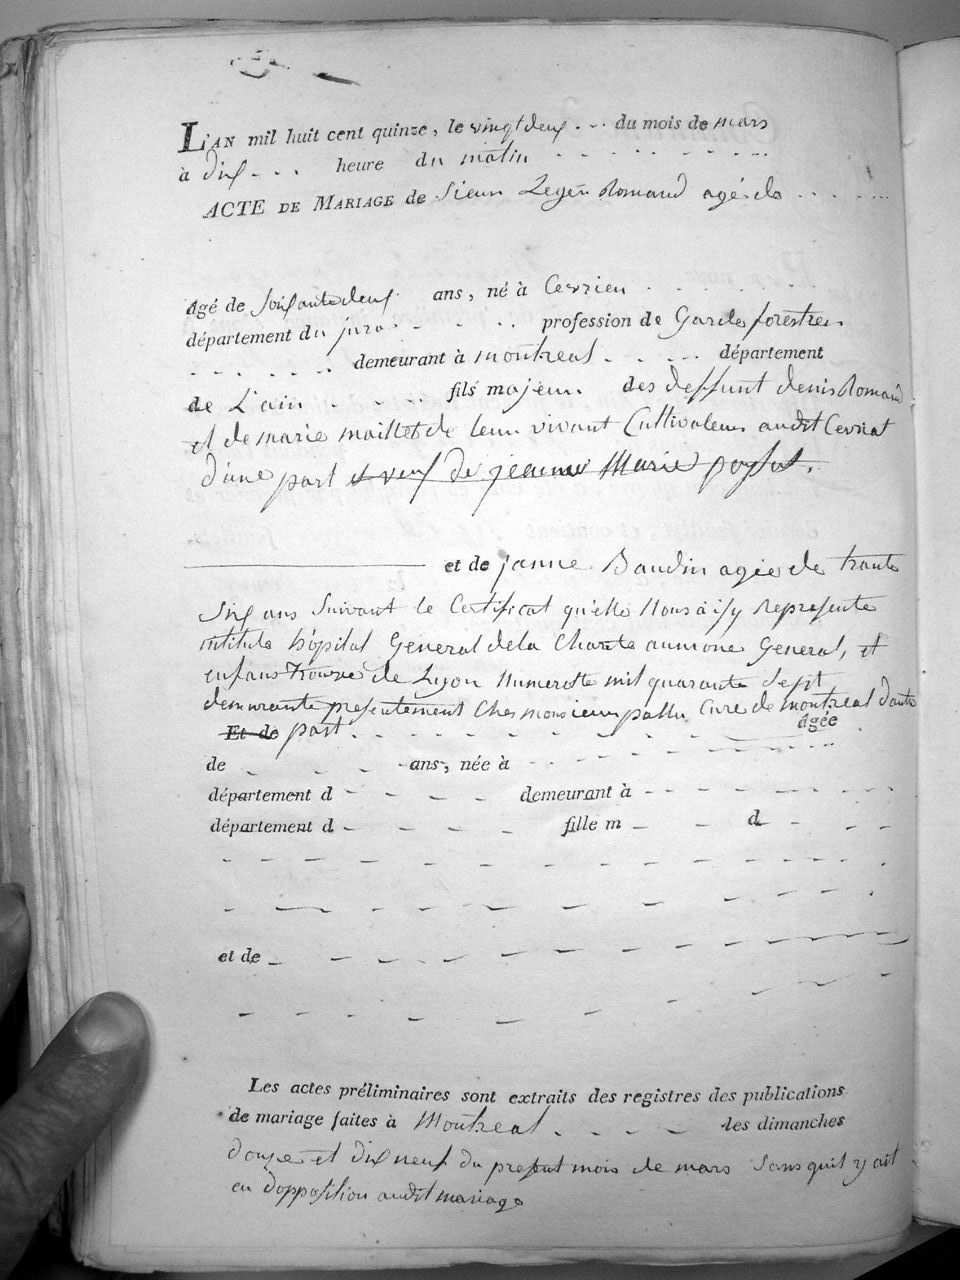 L'AN mil huit cent quinze, le vingt deux du mois de mars
à dix heure du matin
ACTE DE MARIAGE de Sieur Legér Romand agé de
Agé de soixante deux ans, né à
département du jura profession de Garde forestier
demeurant à montreal département
de L'ain fils majeur des deffunt denis Romand
et de marie maillet de leur vivant Cultivateur audit
d'une part et veuf de jeanne Marie
et de janne Baudin agée de trante
six ans Suivant le Certificat qu'elle Nous à isy represente
intitule hôpital General de la Charité aumone General, et
enfans trouvé de Lyon Numerotte mil quarante Sept
demeurante presentement Ches monsieur pallu Cure de montreal d'autre
Et de part agée
de ans, née à
département d demeurant à
département d fille m d
et de
Les actes préliminaires sont extraits des registres des publications
de mariage faites à Montreal les dimanches
douze et dix neuf du present mois de mars Sans quil y ait
eu d'opposition audit mariage